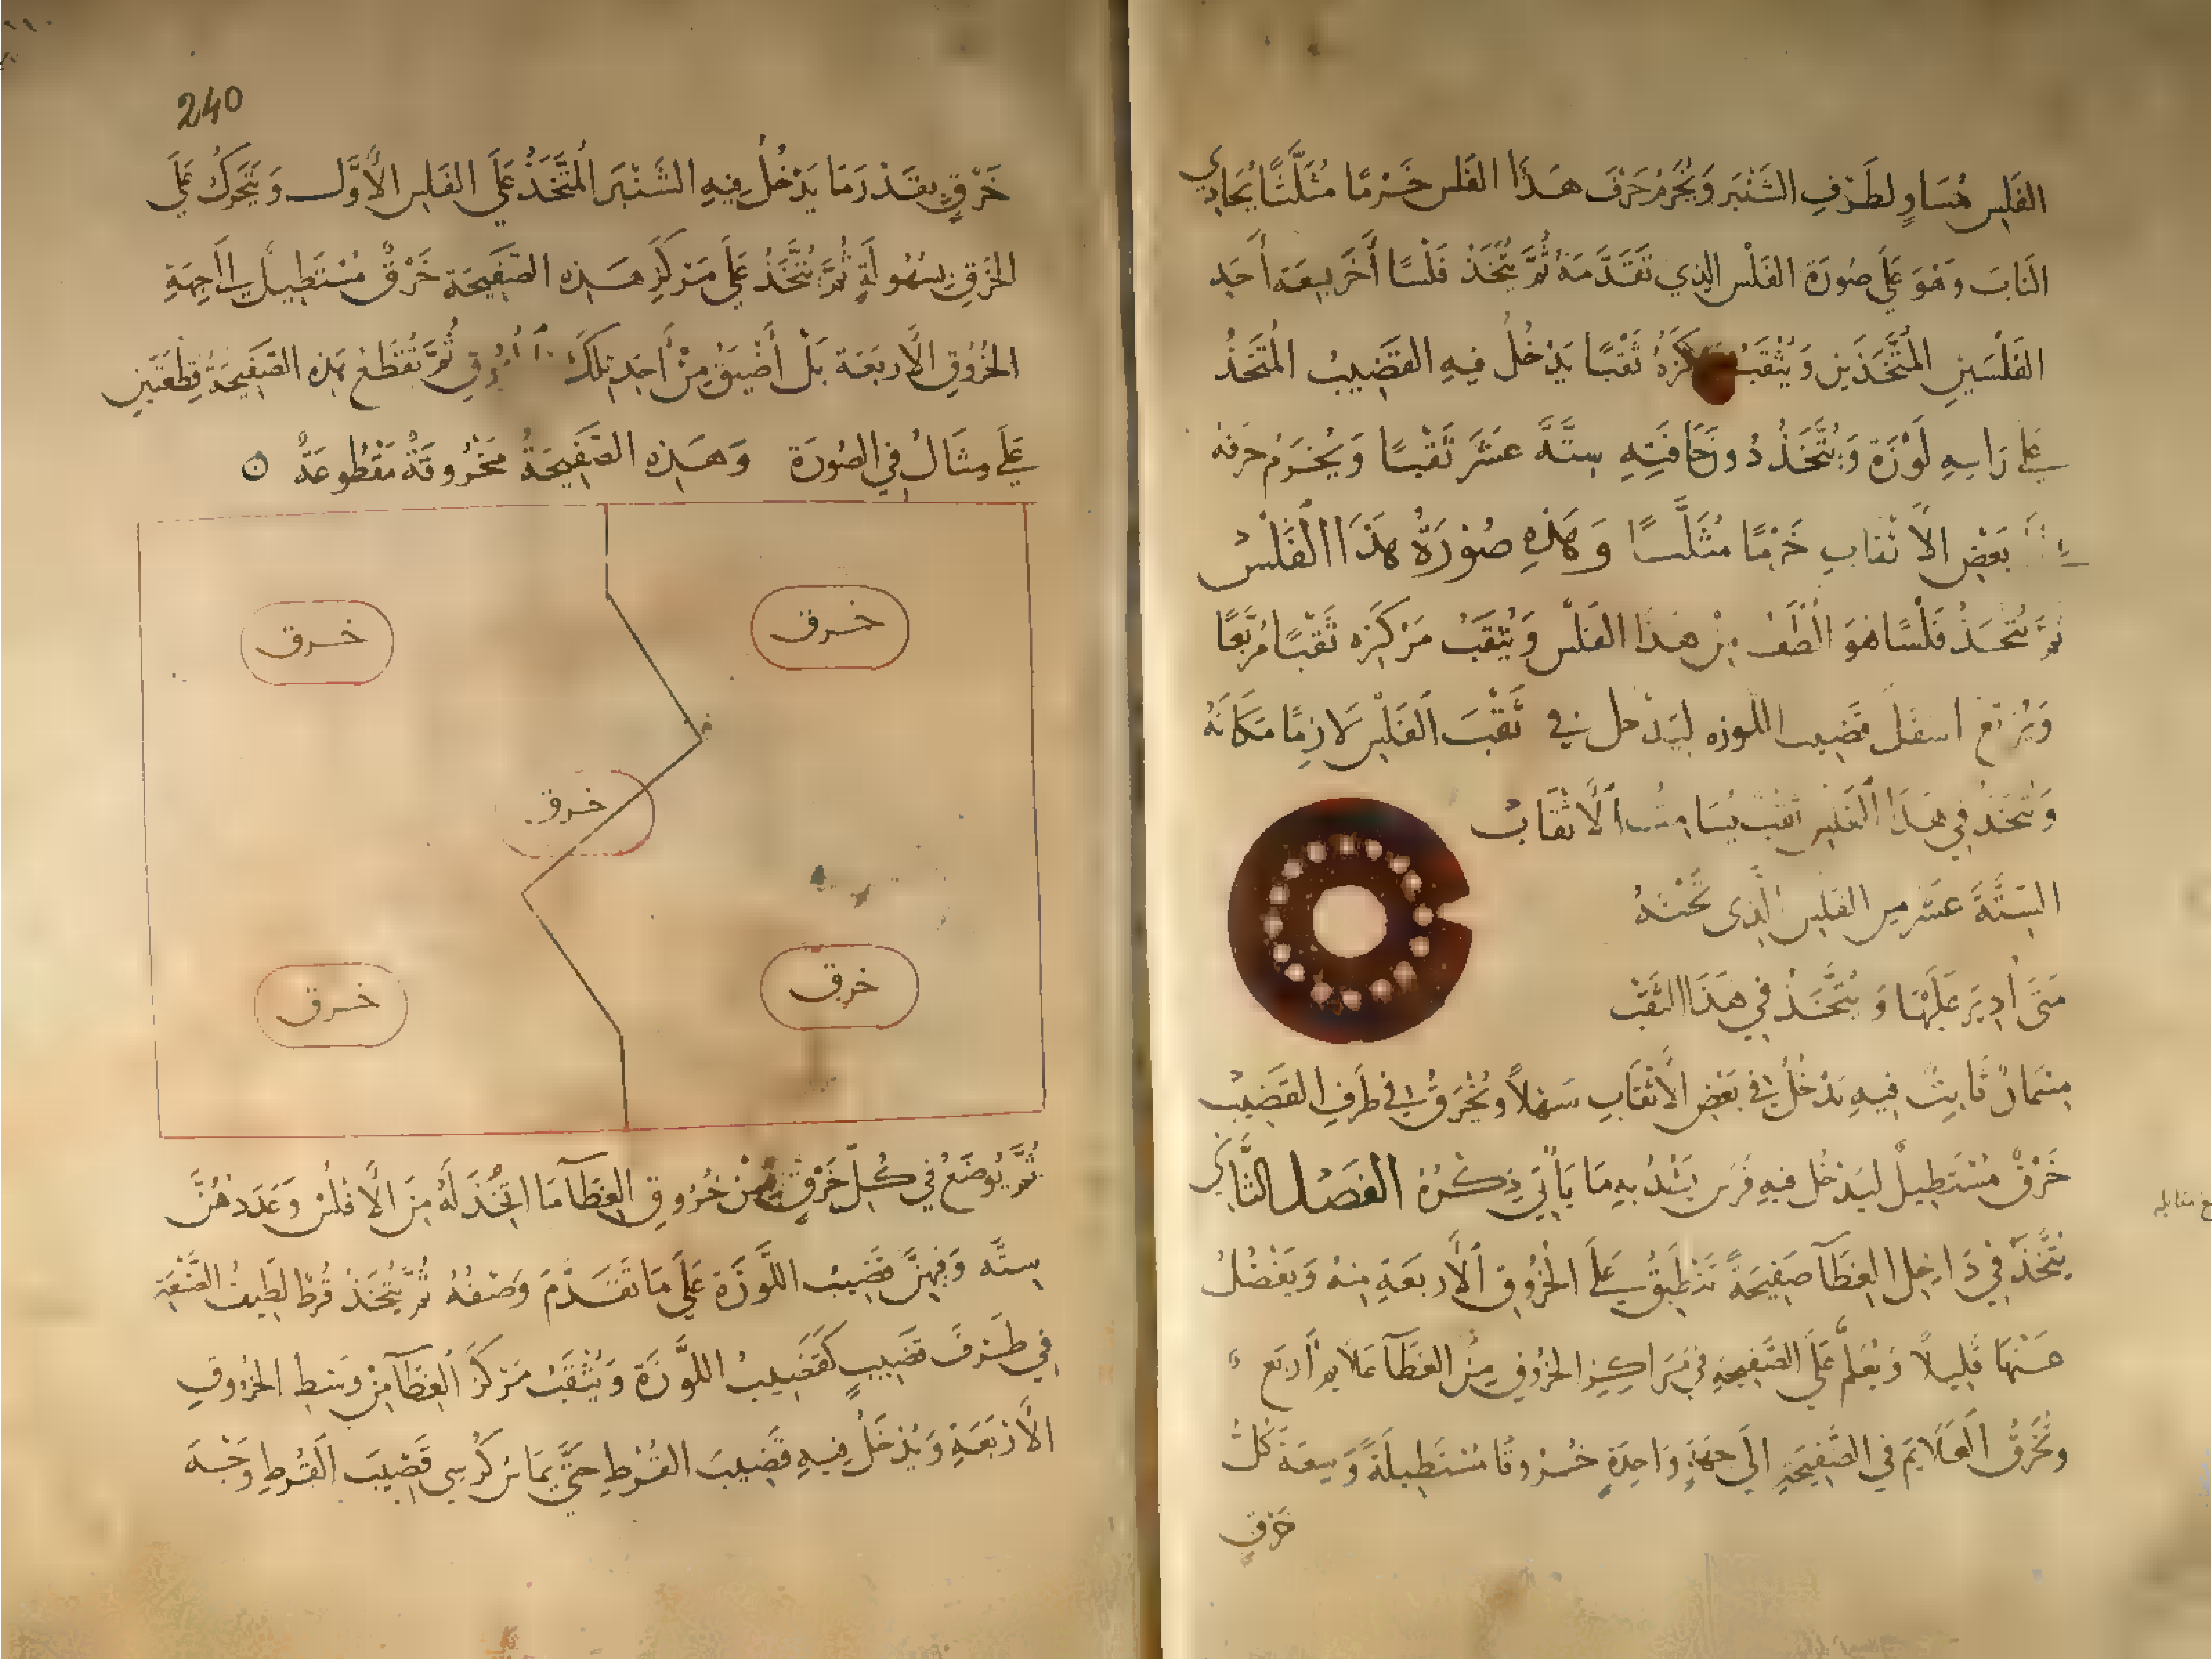 الفَلِس مُسَاوٍ لطَرَفِ الشَنْبَر وَيُخْرَمُ حَرْفَ هَذَا الفَلس خَرمًا مُثَلَّثًا يُحَاذِي
النَابَ وَهُوَ عَلَى صُورَة الفَلْس الذِي تَقَدَّمَهُ ثُمَّ يُتَّخَذ فَلْسًا أَخَر بِسِعَة أَحَدِ
الفَلْسَينِ المُتَّخَذَينِ وَيُثْقَبُ مَركَزهُ ثَقْبًا يَدْخُلُ فيهِ القَضِيبُ المُتَّخَذُ
عَلى رَاسِهِ لَوْزَة وَيُتَّخَذُ دُونَ حَافَتِهِ سِتَّةَ عَشَرَ ثَقْبًا وَيُخرَمُ حَرفهُ
بَعْضِ الأَثقابِ خَرْمًا مُثَلَّثًا وَهَذِهِ صُوْرَةُ هَذَا الفَلْسْ
ثمَّ يُتّخَذُ فَلْسًا هُوَ الْطَفُ مِنْ هذا الفَلْس وَيُثقَبُ مَرْكَزَه ثَقْبًا مُرَبَّعًا
اسفلُ قضِيب اللوزه ليَدْخل في ثَقْبَ الفَلْس لازِمًا مَكَانَهُ
وَيُتخَذُ في هَذَا الفَلِس ثقبْ يُسَامتُ الأَثْقَابْ
السِتَّةَ عَشَر مِن الفَلِس الَّذِى تَحْتَهُ
مَتَى أُدِيرَ عَلَيْهَا وَيُتَّخَذُ في هَذَا الثَقْبْ
مِسْمَارٌ ثَابِتٌ فيهِ يَدْخُلُ في بَعْضِ الأَثْقَابِ سَهْلًا وَيُخْرَقُ في طَرَفِ القَضِيبْ
خَرْقٌ مُسْتَطِيلٌ ليَدْخُل فيهِ فَرَس يَشُدُ بِهِ مَا يَأتِي ذِكْرُهُ الفَصْل الثَّانِي
يُتَّخَذُ في دَاخِلِ الغِطَآ صَفِيحَةً تَنْطَبِقُ عَلَى الخُرُوقِ الأَربَعَةِ مِنهُ وَيَفْضُلُ
عَنْهَا قَلِيلًا وَيُعَلَّم عَلَى الصَّفِيحَةِ في مَرَاكِز الخُرُوقِ مِنْ الغِطَآ عَلايم أَربَع
وَتُخْرَقُ العَلَايمَ في الصَّفِيحَةِ الَى جِهَةٍ وَاحِدَةٍ خُرُوقًا مُسْتَطِيلَةً وَسِعَة كُلّ
خَرْقٍ
مقابله
240
خَرْقٍ بِقَدْرَمَا يَدْخُلُ فيهِ الشَنْبَر المُتَّخَذُ عَلَى الفَلِس الأَوَّل وَيَتَحَرَّكُ عَلَى
الخَرْقِ بِسُهُولَةٍ ثُمَّ يُتَّخَذُ عَلَى مَرْكَزِ هَذِه الصَفِيحَة خَرْقٌ مُسْتَطِيلٌ الى جِهَةِ
الخُرُوقِ الأَربَعَة بَلْ أَضْيَقُ مِنْ أَحَدِ تِلكَ الخُرُوقِ ثُمَّ تُقْطَعُ هَذِه الصَفِيحَةُ قِطْعَتَينِ
عَلَى مِثَالٍ في الصُورَة وَهَذِه الصَفِيحَةُ مَخْرُوقَةٌ مَقْطُوعَةٌ
خرق
خرق
خرق
خرق
خرق
ثُمَّ يُوضَعُ في كُلِّ خَرْقٍ مِنْ خُرُوقِ الغِطَآ مَا اتُّخِذَ لَهُ مِنَ الأَفْلُس وَعَدَدهُنَّ
سِتَّه وَفِيهِنَّ قَضِيبُ اللَّوْزَة عَلَى مَا تَقَدَّمَ وَصْفُهُ ثُمَّ يُتَّخَذ قُرْطًا لَطِيفُ الصَّنْعَةِ
في طَرَفَ قَضِيبٍ كَقَضِيبُ اللَّوْزَة وَيُثْقَبُ مَرْكَزُ الغِطَآ مِنْ وَسَطِ الخُرُوقِ
الأَرْبَعَةِ وَيُدْخَلُ فيهِ قَضِيبَ القُرْطِ حَتَّى يُمَاسَّ كُرسِي قَضِيبَ القُرْطِ وَجْهَ